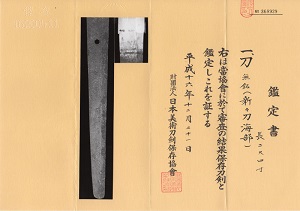 鑑定書
一、刀 無銘(新々刀海部)
長二尺四寸
右は當協會に於て審査の結果保存刀剣と
鑑定しこれを証する
平成十六年十二月二十一日
財団法人 日本美術刀剣保存協會